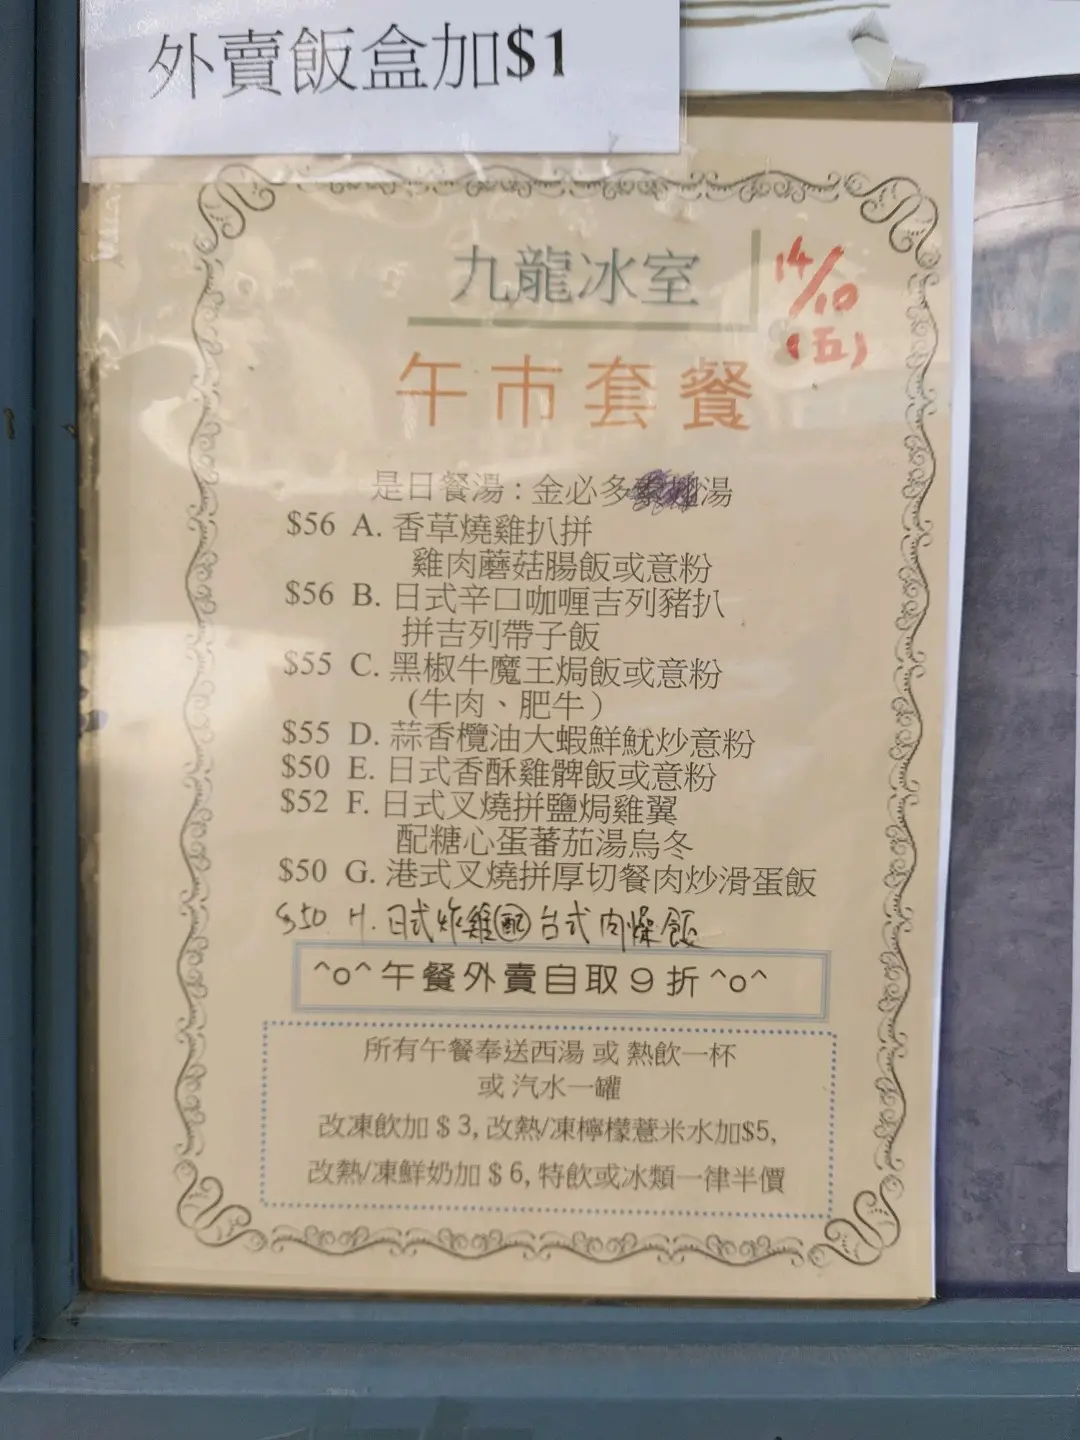 外賣飯盒加$1
九龍冰室
14/10
(五)
午市套餐
是日餐湯：金必多湯
$56 A. 香草燒雞扒拼
雞肉蘑菇腸飯或意粉
$56 B. 日式辛口咖喱吉列豬扒
拼吉列帶子飯
$55 C. 黑椒牛魔王焗飯或意粉
(牛肉、肥牛)
$55 D. 蒜香欖油大蝦鮮魷炒意粉
$50 E. 日式香酥雞髀飯或意粉
$52 F. 日式叉燒拼鹽焗雞翼
配糖心蛋蕃茄湯烏冬
$50 G. 港式叉燒拼厚切餐肉炒滑蛋飯
$50 H. 日式炸雞配台式肉燥飯
^o^午餐外賣自取9折^o^
所有午餐奉送西湯 或 熱飲一杯
或 汽水一罐
改凍飲加 $ 3, 改熱/凍檸檬薏米水加$5,
改熱/凍鮮奶加 $ 6, 特飲或冰類一律半價